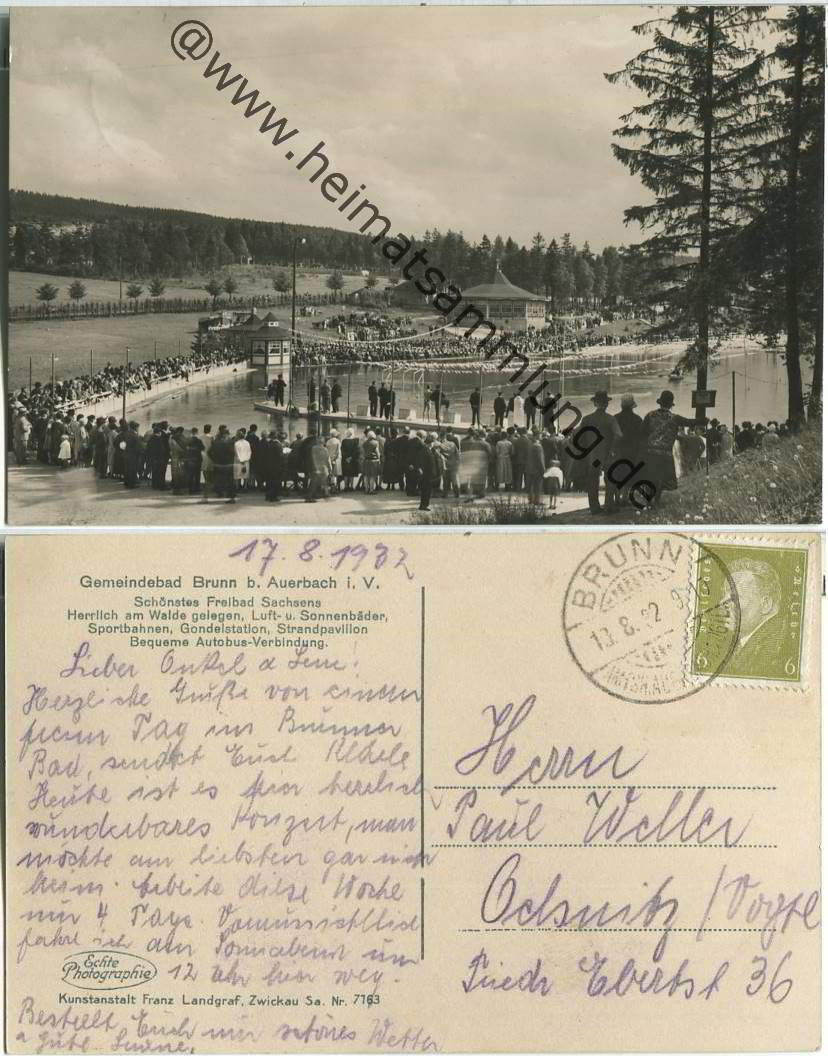 @www.heimatsammlung.de
17.8.1932
Gemeindebad Brunn b. Auerbach i. V.
Schönstes Freibad Sachsens
Herrlich am Walde gelegen, Luft- u. Sonnenbäder,
Sportbahnen, Gondelstation, Strandpavillon
Bequeme Autobus-Verbindung.
Lieber Onkel
Herzliche Grüße von einem
Tag im Brunner
Bad, sendet Euch
Heute ist es hier herrlich
wunderbares Konzert, man
möchte am liebsten gar nich
heim. Arbeite diese Woche
nur 4 Tage. Voraussichtlich
fahre ich am Sonnabend um
12 Uhr hier weg.
Echte
Photographie
Kunstanstalt Franz Landgraf, Zwickau Sa. Nr. 7763
Bestellt Euch nur schönes Wetter
BRUNN
6 6
Herrn
Paul Weller
Oelsnitz / Vogtl
Friedr Ebertst 36